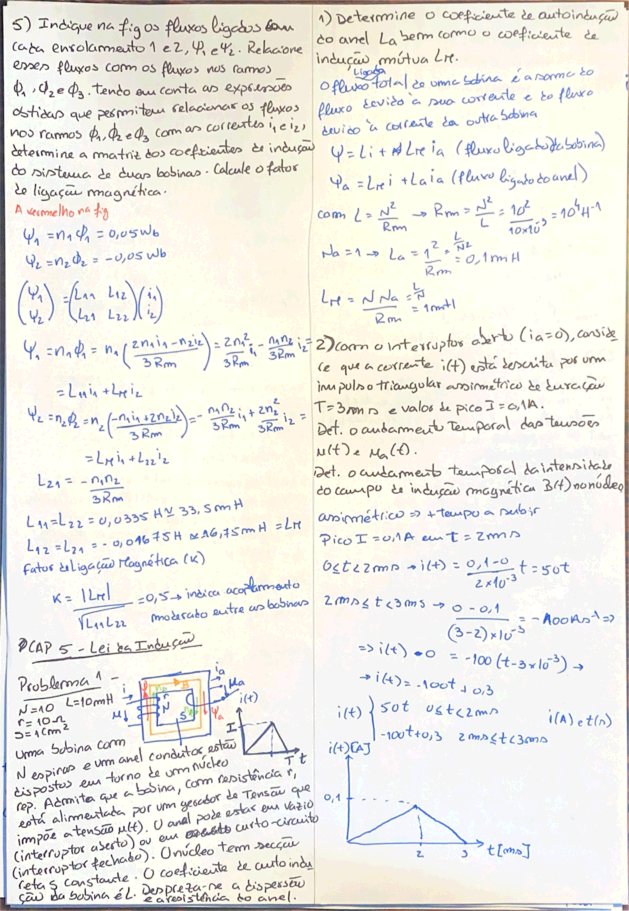 5) Indique na fig os fluxos ligados com
cada enrolamento 1 e 2, Ψ₁ e Ψ₂. Relacione
esses fluxos com os fluxos nos ramos
ϕ₁, ϕ₂ e ϕ₃. Tendo em conta as expressões
obtidas que permitem relacionar os fluxos
nos ramos ϕ₁, ϕ₂ e ϕ₃ com as correntes i₁ e i₂,
determine a matriz dos coeficientes de indução
do sistema de duas bobinas. Calcule o fator
de ligação magnética.
A vermelho na fig
Ψ₁ = n₁ϕ₁ = 0,05 Wb
Ψ₂ = n₂ϕ₂ = -0,05 Wb
(Ψ₁ Ψ₂) = (L₁₁ L₁₂ L₂₁ L₂₂)(i₁ i₂)
Ψ₁ = n₁ϕ₁ = n₁ (2n₁i₁ - n₂i₂ / 3Rm) = 2n₁²/3Rm i₁ - n₁n₂/3Rm i₂ =
= L₁₁i₁ + LMi₂
Ψ₂ = n₂ϕ₂ = n₂ (-n₁i₁ + 2n₂i₂ / 3Rm) = - n₁n₂/3Rm i₁ + 2n₂²/3Rm i₂ =
= LMi₁ + L₂₂i₂
L₂₁ = -n₁n₂/3Rm
L₁₁ = L₂₂ = 0,0335 H ≃ 33,5mH
L₁₂ = L₂₁ = -0,01675H ≃ 16,75mH = LM
Fator de Ligação Magnética (K)
K = |LM|/√L₁₁L₂₂ = 0,5 → indica acoplamento
moderado entre as bobinas
CAP 5 - Lei da Indução
Problema 1 -
N=10 L=10mH
r=10Ω
S=1cm²
i
u
r
N
S
ia
ua
Ψa
i(t)
I
T t
Uma bobina com
N espiras e um anel condutor estão
dispostos em torno de um núcleo
rep. Admita que a bobina, com resistência r,
está alimentada por um gerador de Tensão que
impõe a tensão u(t). O anel pode estar em vazio
(interruptor aberto) ou em curto-circuito
(interruptor fechado). O núcleo tem secção
reta S constante. O coeficiente de auto indu
ção da bobina é L. Despreza-se a dispersão
e a resistência do anel.
1) Determine o coeficiente de autoindução
do anel La bem como o coeficiente de
indução mútua LM.
Ligado
O fluxo total de uma bobina é a soma do
fluxo devido à sua corrente e do fluxo
devido à corrente da outra bobina
Ψ = Li + LM ia (fluxo ligado da bobina)
Ψa = LM i + La ia (fluxo ligado do anel)
com L = N²/Rm → Rm = N²/L = 10²/10×10⁻³ = 10⁴ H⁻¹
Na = 1 → La = 1²/Rm = L/N² = 0,1mH
LM = N Na/Rm = L/N = 1mH
2) com o interruptor aberto (ia=0), conside
re que a corrente i(t) está descrita por um
impulso triangular assimétrico de duração
T=3ms e valor de pico I=0,1A.
Det. o andamento Temporal das tensões
u(t) e ua(t).
Det. o andamento temporal da intensidade
do campo de indução magnética B(t) no núcleo
assimétrico => + tempo a subir
Pico I = 0,1A em t = 2ms
0≤t<2ms → i(t) = 0,1-0/2×10⁻³ t = 50t
2ms≤t<3ms → 0-0,1/(3-2)×10⁻³ = -100As⁻¹ =>
=> i(t) - 0 = -100(t-3×10⁻³) →
→ i(t) = -100t + 0,3
i(t) { 50t 0≤t<2ms
-100t+0,3 2ms≤t<3ms
i(A) e t(s)
i(t)[A]
0,1
2 3 t[ms]